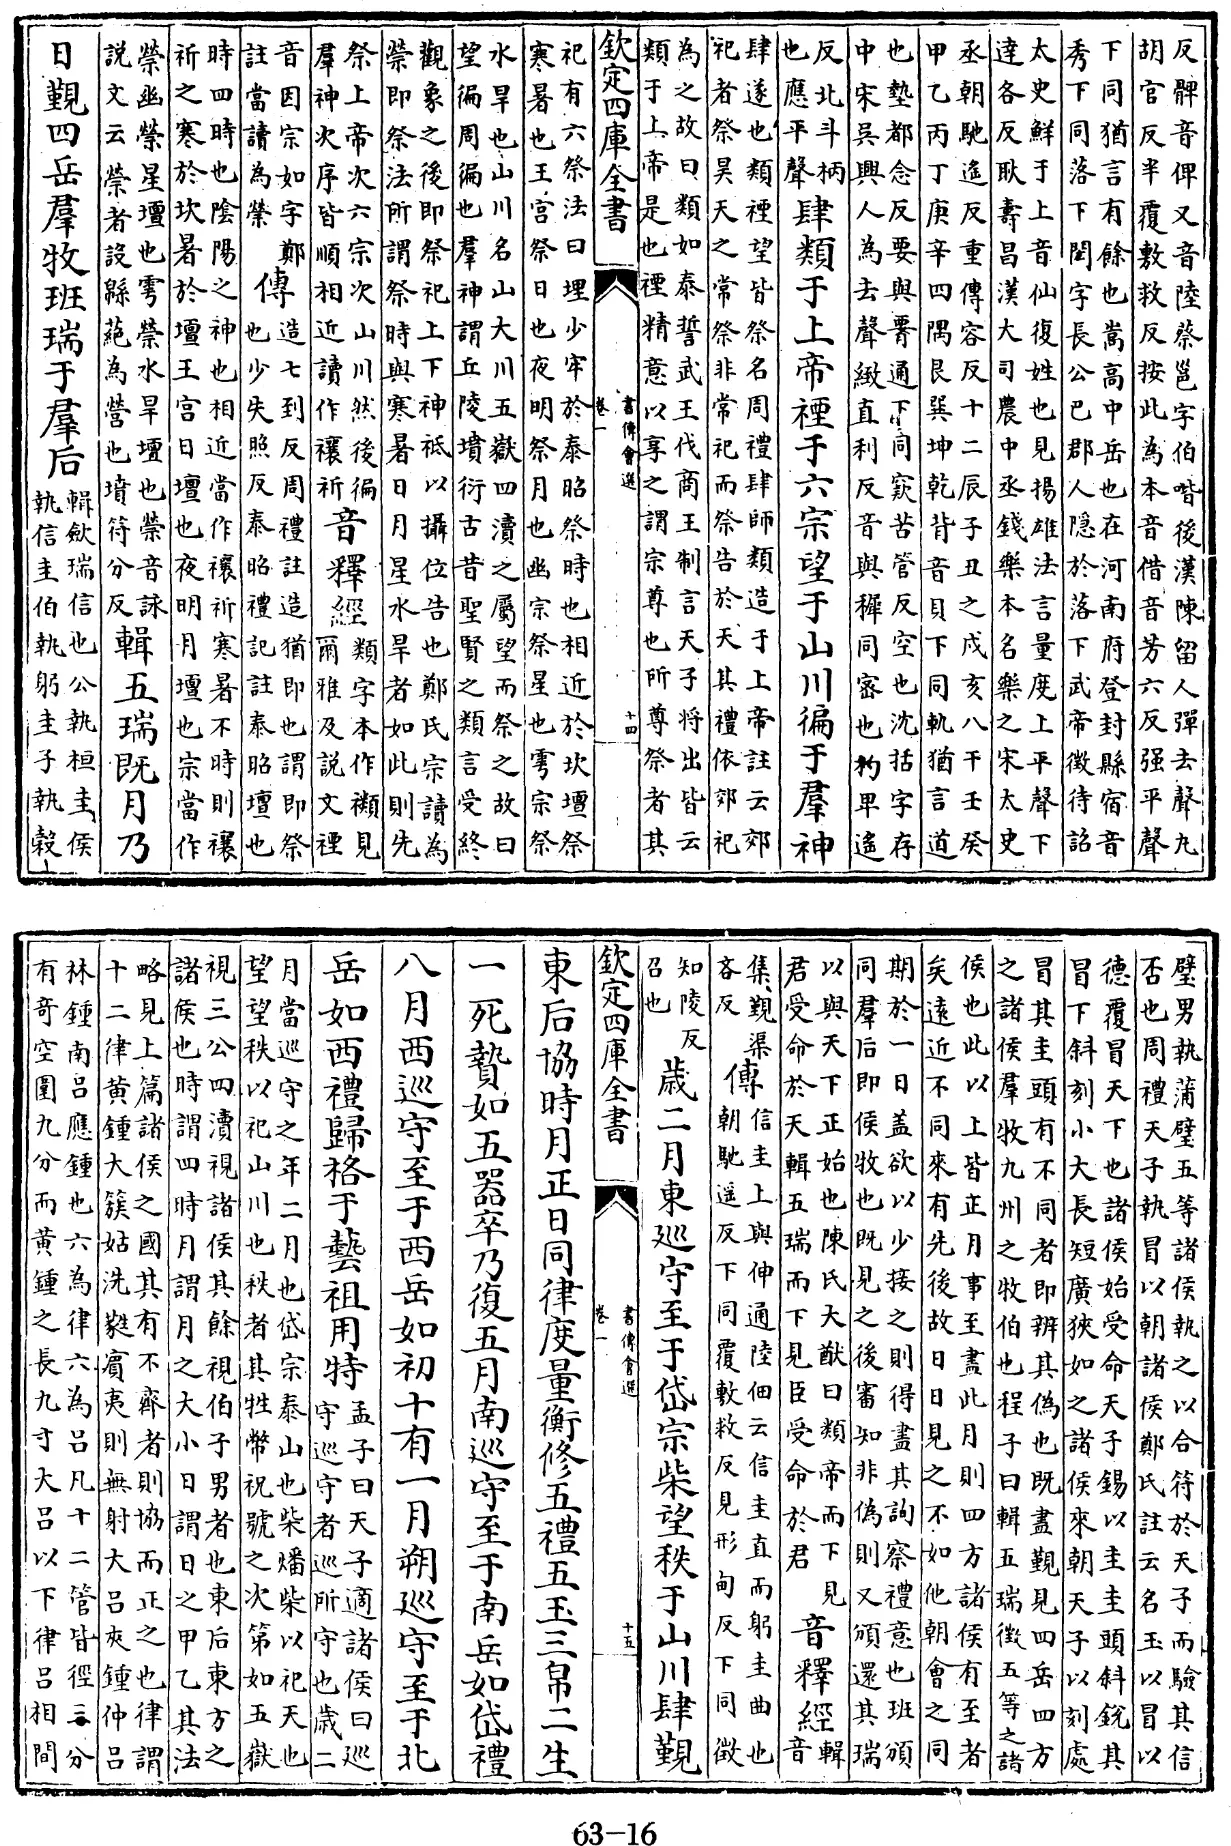 反髀音俾又音陸蔡邕字伯喈後漢陳留人彈去聲九
胡官反半覆敷救反按此為本音借音芳六反强平聲
下同猶言有餘也嵩高中岳也在河南府登封縣宿音
秀下同落下閎字長公巴郡人隱於落下武帝徵待詔
太史鮮于上音仙復姓也見揚雄法言量度上平聲下
逹各反耿壽昌漢大司農中丞錢樂本名樂之宋太史
丞朝馳遙反重傳容反十二辰子丑之戍亥八干壬癸
甲乙丙丁庚辛四隅艮巽坤乾背音貝下同軌猶言道
也墊都念反要與要通下同窾苦管反空也沈括字存
中宋吳興人為去聲緻直利反音與穉同宻也杓卑遙
反北斗柄
也應平聲
肆類于上帝禋于六宗望于山川徧于羣神
肆遂也類禋望皆祭名周禮肆師類造于上帝註云郊
祀者祭昊天之常祭非常祀而祭告於天其禮依郊祀
為之故曰類如泰誓武王代商王制言天子將出皆云
類于上帝是也禋精意以享之謂宗尊也所尊祭者其
欽定四庫全書
書傳會選
卷一
十四
祀有六祭法曰埋少牢於泰昭祭時也相近於坎壇祭
寒暑也王宫祭日也夜明祭月也幽宗祭星也雩宗祭
水旱也山川名山大川五嶽四瀆之屬望而祭之故曰
望徧周徧也羣神謂丘陵墳衍古昔聖賢之類言受終
觀象之後即祭祀上下神祗以攝位告也鄭氏宗讀為
禜即祭法所謂祭時與寒暑日月星水旱者如此則先
祭上帝次六宗次山川然後徧
羣神次序皆順相近讀作禳祈
音釋經
類字本作禷見
爾雅及説文禋
音因宗如字鄭
註當讀為禜
傳
造七到反周禮註造猶即也謂即祭
也少失照反泰昭禮記註泰昭壇也
時四時也陰陽之神也相近當作禳祈寒暑不時則禳
祈之寒於坎暑於壇王宫日壇也夜明月壇也宗當作
禜幽禜星壇也雩禜水旱壇也禜音詠
説文云禜者設緜蕝為營也墳符分反
輯五瑞既月乃
日覲四岳羣牧班瑞于羣后
輯斂瑞信也公執桓圭侯
執信圭伯執躬圭子執穀
璧男執蒲璧五等諸侯執之以合符於天子而驗其信
否也周禮天子執冒以朝諸侯鄭氏註云名玉以冒以
德覆冒天下也諸侯始受命天子錫以圭圭頭斜銳其
冒下斜刻小大長短廣狹如之諸侯來朝天子以刻處
冒其圭頭有不同者即辨其偽也既盡覲見四岳四方
之諸侯羣牧九州之牧伯也程子曰輯五瑞徵五等之諸
侯也此以上皆正月事至盡此月則四方諸侯有至者
矣逺近不同來有先後故日日見之不如他朝會之同
期於一日盖欲以少接之則得盡其詢察禮意也班頒
同羣后即侯牧也既見之後審知非偽則又頒還其瑞
以與天下正始也陳氏大猷曰類帝而下見
君受命於天輯五瑞而下見臣受命於君
音釋經
輯
音
集覲渠
吝反
傳
信圭上與伸通陸佃云信圭直而躬圭曲也
朝馳遥反下同覆敷救反見形甸反下同徵
知陵反
召也
歳二月東巡守至于岱宗柴望秩于山川肆覲
欽定四庫全書
書傳會選
卷一
十五
東后協時月正日同律度量衡修五禮五玉三帛二生
一死贄如五器卒乃復五月南巡守至于南岳如岱禮
八月西巡守至于西岳如初十有一月朔巡守至于北
岳如西禮歸格于藝祖用特
孟子曰天子適諸侯曰巡
守巡守者巡所守也歳二
月當巡守之年二月也岱宗泰山也柴燔柴以祀天也
望望秩以祀山川也秩者其牲幣祝號之次第如五嶽
視三公四瀆視諸侯其餘視伯子男者也東后東方之
諸侯也時謂四時月謂月之大小日謂日之甲乙其法
略見上篇諸侯之國其有不齊者則協而正之也律謂
十二律黄鍾大簇姑洗蕤賓夷則無射大吕夾鍾仲吕
林鍾南吕應鍾也六為律六為吕凡十二管皆徑三分
有竒空圍九分而黄鍾之長九寸大吕以下律吕相間
63-16